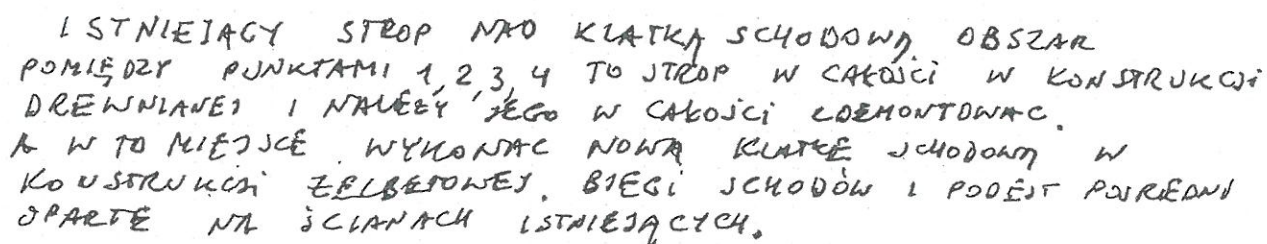 ISTNIEJĄCY STROP NAD KLATKĄ SCHODOWĄ OBSZAR
POMIĘDZY PUNKTAMI 1, 2, 3, 4 TO STROP W CAŁOŚCI W KONSTRUKCJI
DREWNIANEJ I NALEŻY JEGO W CAŁOŚCI ZDEMONTOWAC.
A W TO MIEJSCE WYKONAC NOWĄ KLATKĘ SCHODOWĄ W
KONSTRUKCJI ŻELBETOWEJ. BIEGI SCHODÓW I PODEST POŚREDNI
OPARTE NA ŚCIANACH ISTNIEJĄCYCH.